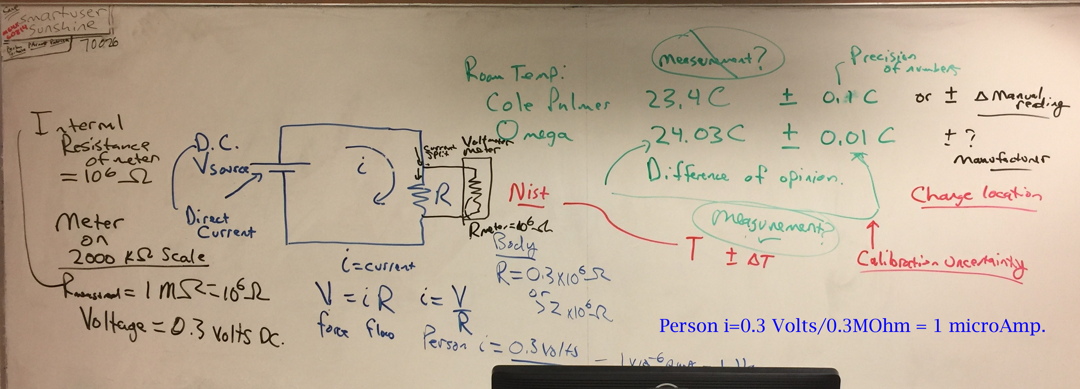 smartuser
sunshine
70026
Internal
Resistance
of meter
= 10⁶ Ω
Meter
on
2000 KΩ Scale
= 1 MΩ = 10⁶ Ω
Voltage = 0.3 volts DC.
D.C.
Vsource
Direct
Current
i
Current
Split
R
meter
Rmeter=10⁶Ω
i=current
V = iR
i = V/R
force flow
Body
R = 0.3x10⁶ Ω
or
>2 x10⁶ Ω
Person i = 0.3 volts
Room Temp:
measurement?
Precision
of numbers
Cole Palmer 23.4 C ± 0.1 C or ± Δ Manual
reading
Omega 24.03 C ± 0.01 C ± ?
manufacturer
Difference of opinion.
Change location
Nist
measurement?
T ± ΔT
Calibration Uncertainty
Person i=0.3 Volts/0.3MOhm = 1 microAmp.